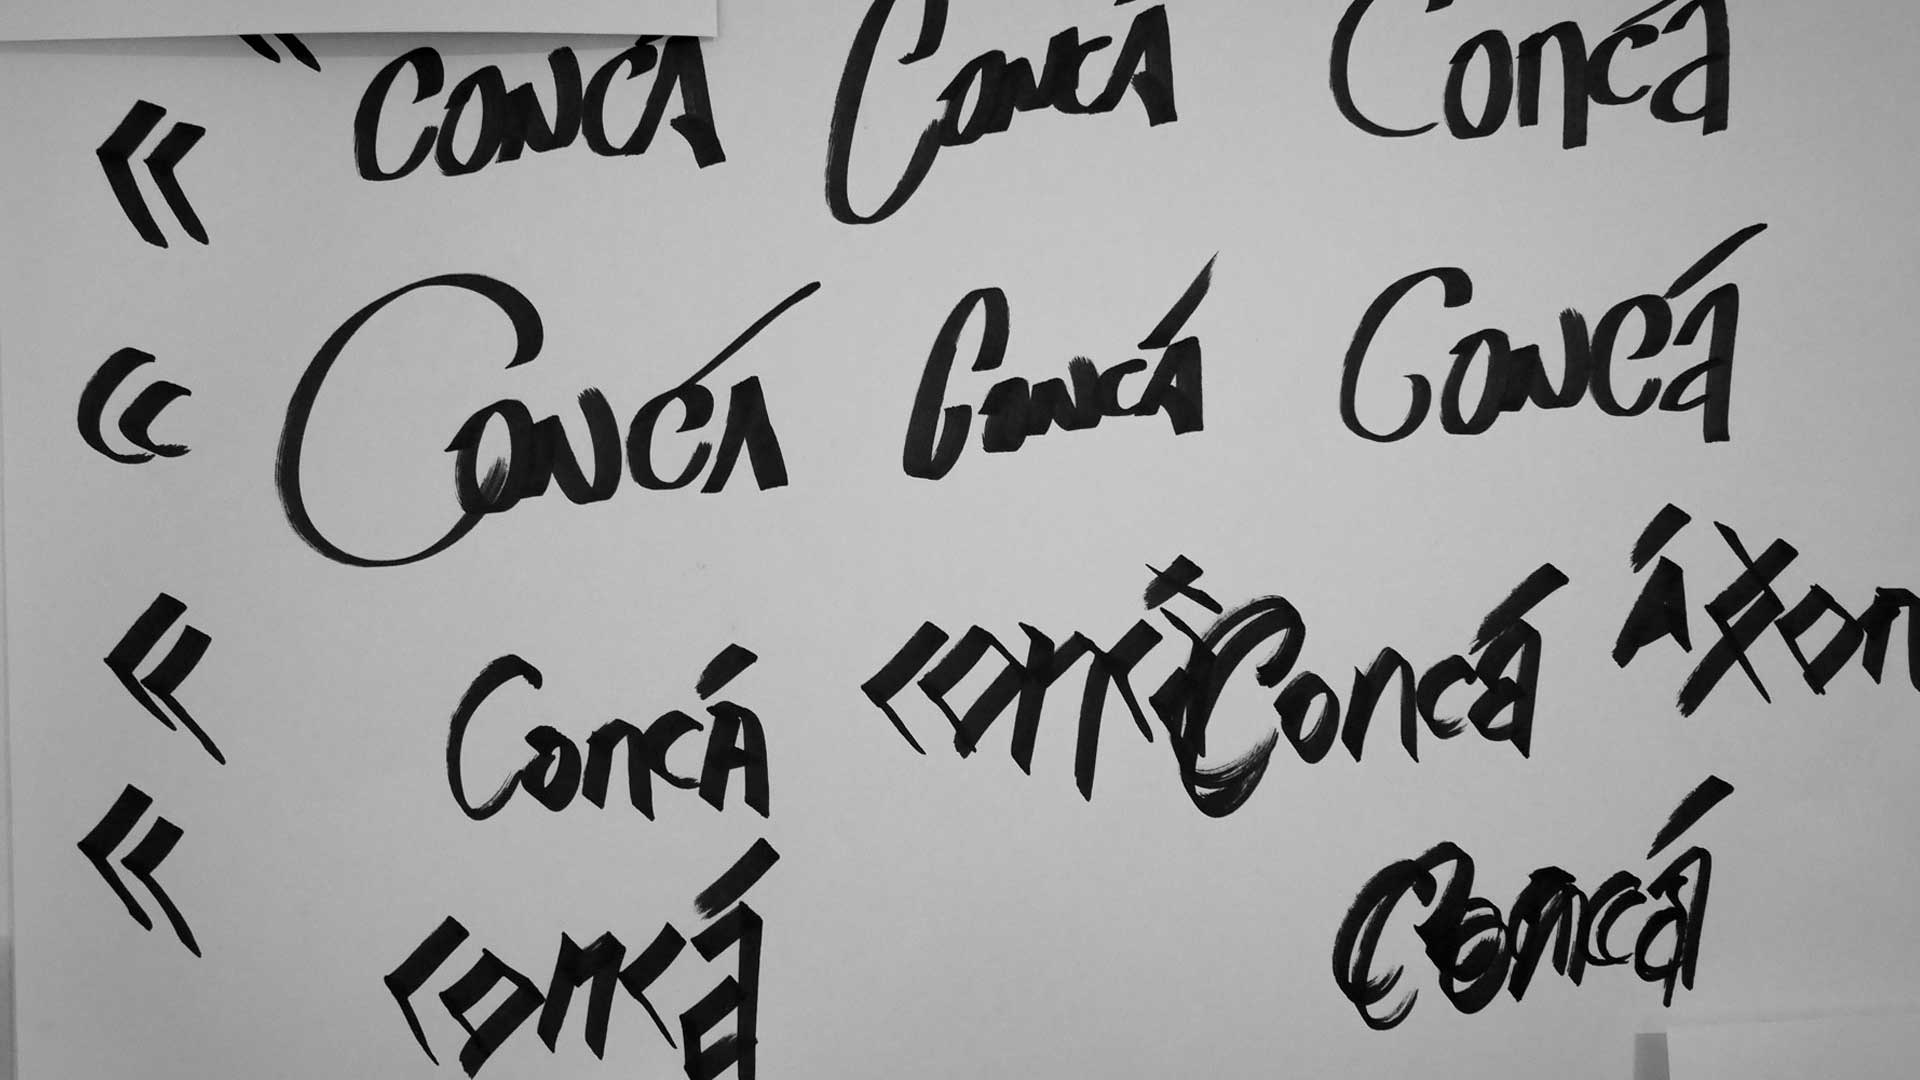 «
CONCÁ Concá Concá
« Concá Concá Concá
« Concá Concá Concá Áxon
« Concá Concá